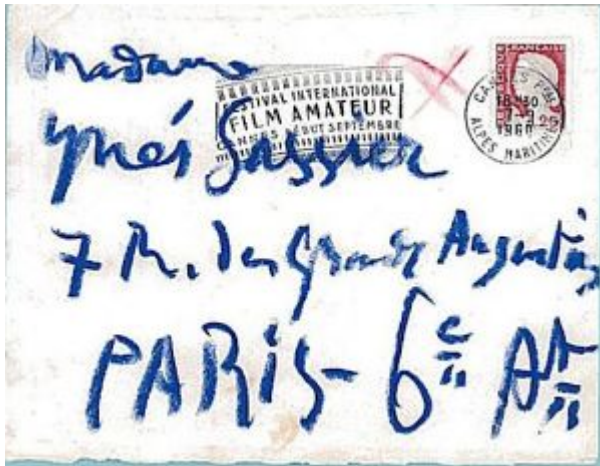 Madame
FESTIVAL INTERNATIONAL
FILM AMATEUR
CANNES DÉBUT SEPTEMBRE
RÉPUBLIQUE FRANÇAISE
0,25
CANNES
18H30
7-9
1960
ALPES MARITIMES
Ynés Sassier
7 R. des Grands Augustins
PARIS - 6e Art